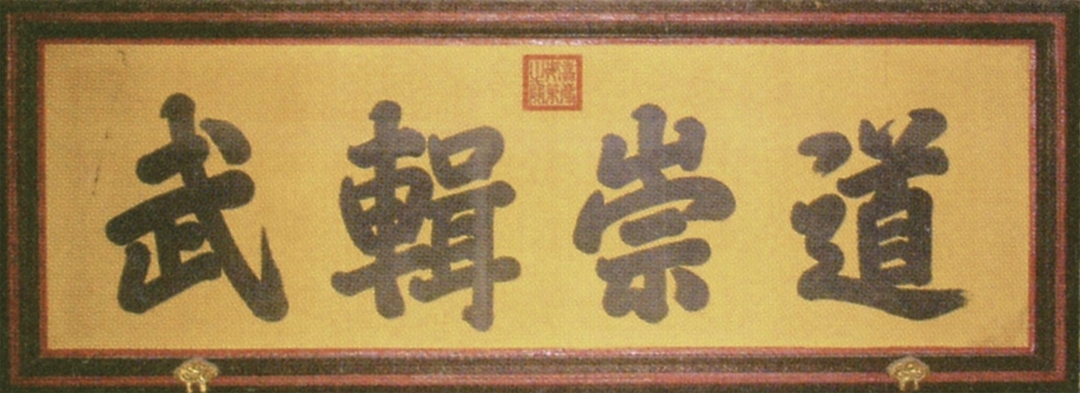 道崇輯武